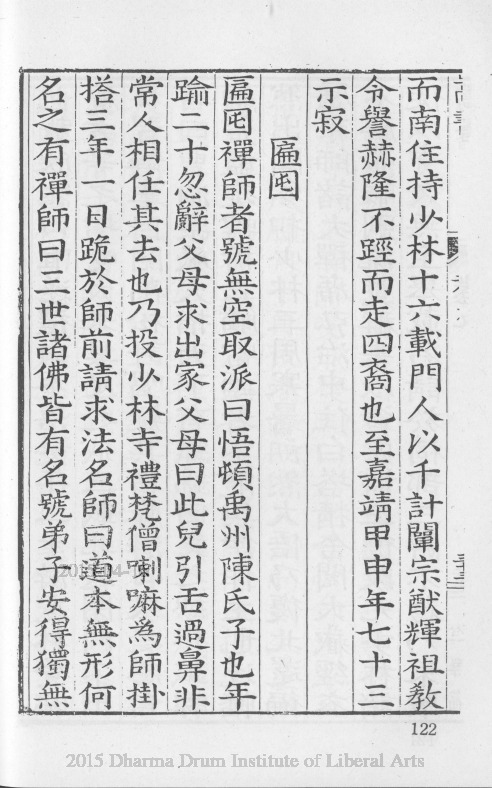 而南住持少林十六載門人以千計闡宗猷輝祖教
令譽赫隆不踁而走四裔也至嘉靖甲申年七十三
示寂
匾囤
匾囤禪師者號無空取派曰悟頓禹州陳氏子也年
踰二十忽辭父母求出家父母曰此兒引舌過鼻非
常人相任其去也乃投少林寺禮梵僧喇嘛為師掛
搭三年一日跪於師前請求法名師曰道本無形何
名之有禪師曰三世諸佛皆有名號弟子安得獨無
122
2015 Dharma Drum Institute of Liberal Arts